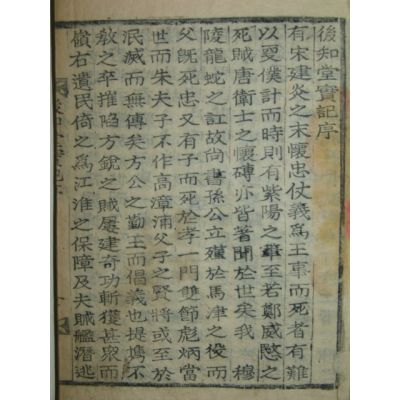 後知堂實記序
有宋建炎之末懷忠仗義爲王事而死者有難
以更僕計而時則有紫陽之筆至若鄭威愍之
死賊唐衛士之懷磚亦皆著聞於世矣我 穆
陵龍蛇之訌故尚書孫公立殣於馬津之役而
父旣死忠又有子而死於孝一門雙節彪炳當
世而朱夫子不作高漳浦父子之賢將或至於
泯滅而無傳矣方公之勤王而倡義也提攜不
敎之卒摧陷方銳之賊屢建奇功斬獲甚衆而
嶺右遺民倚之爲江淮之保障及夫賊艦潛逃